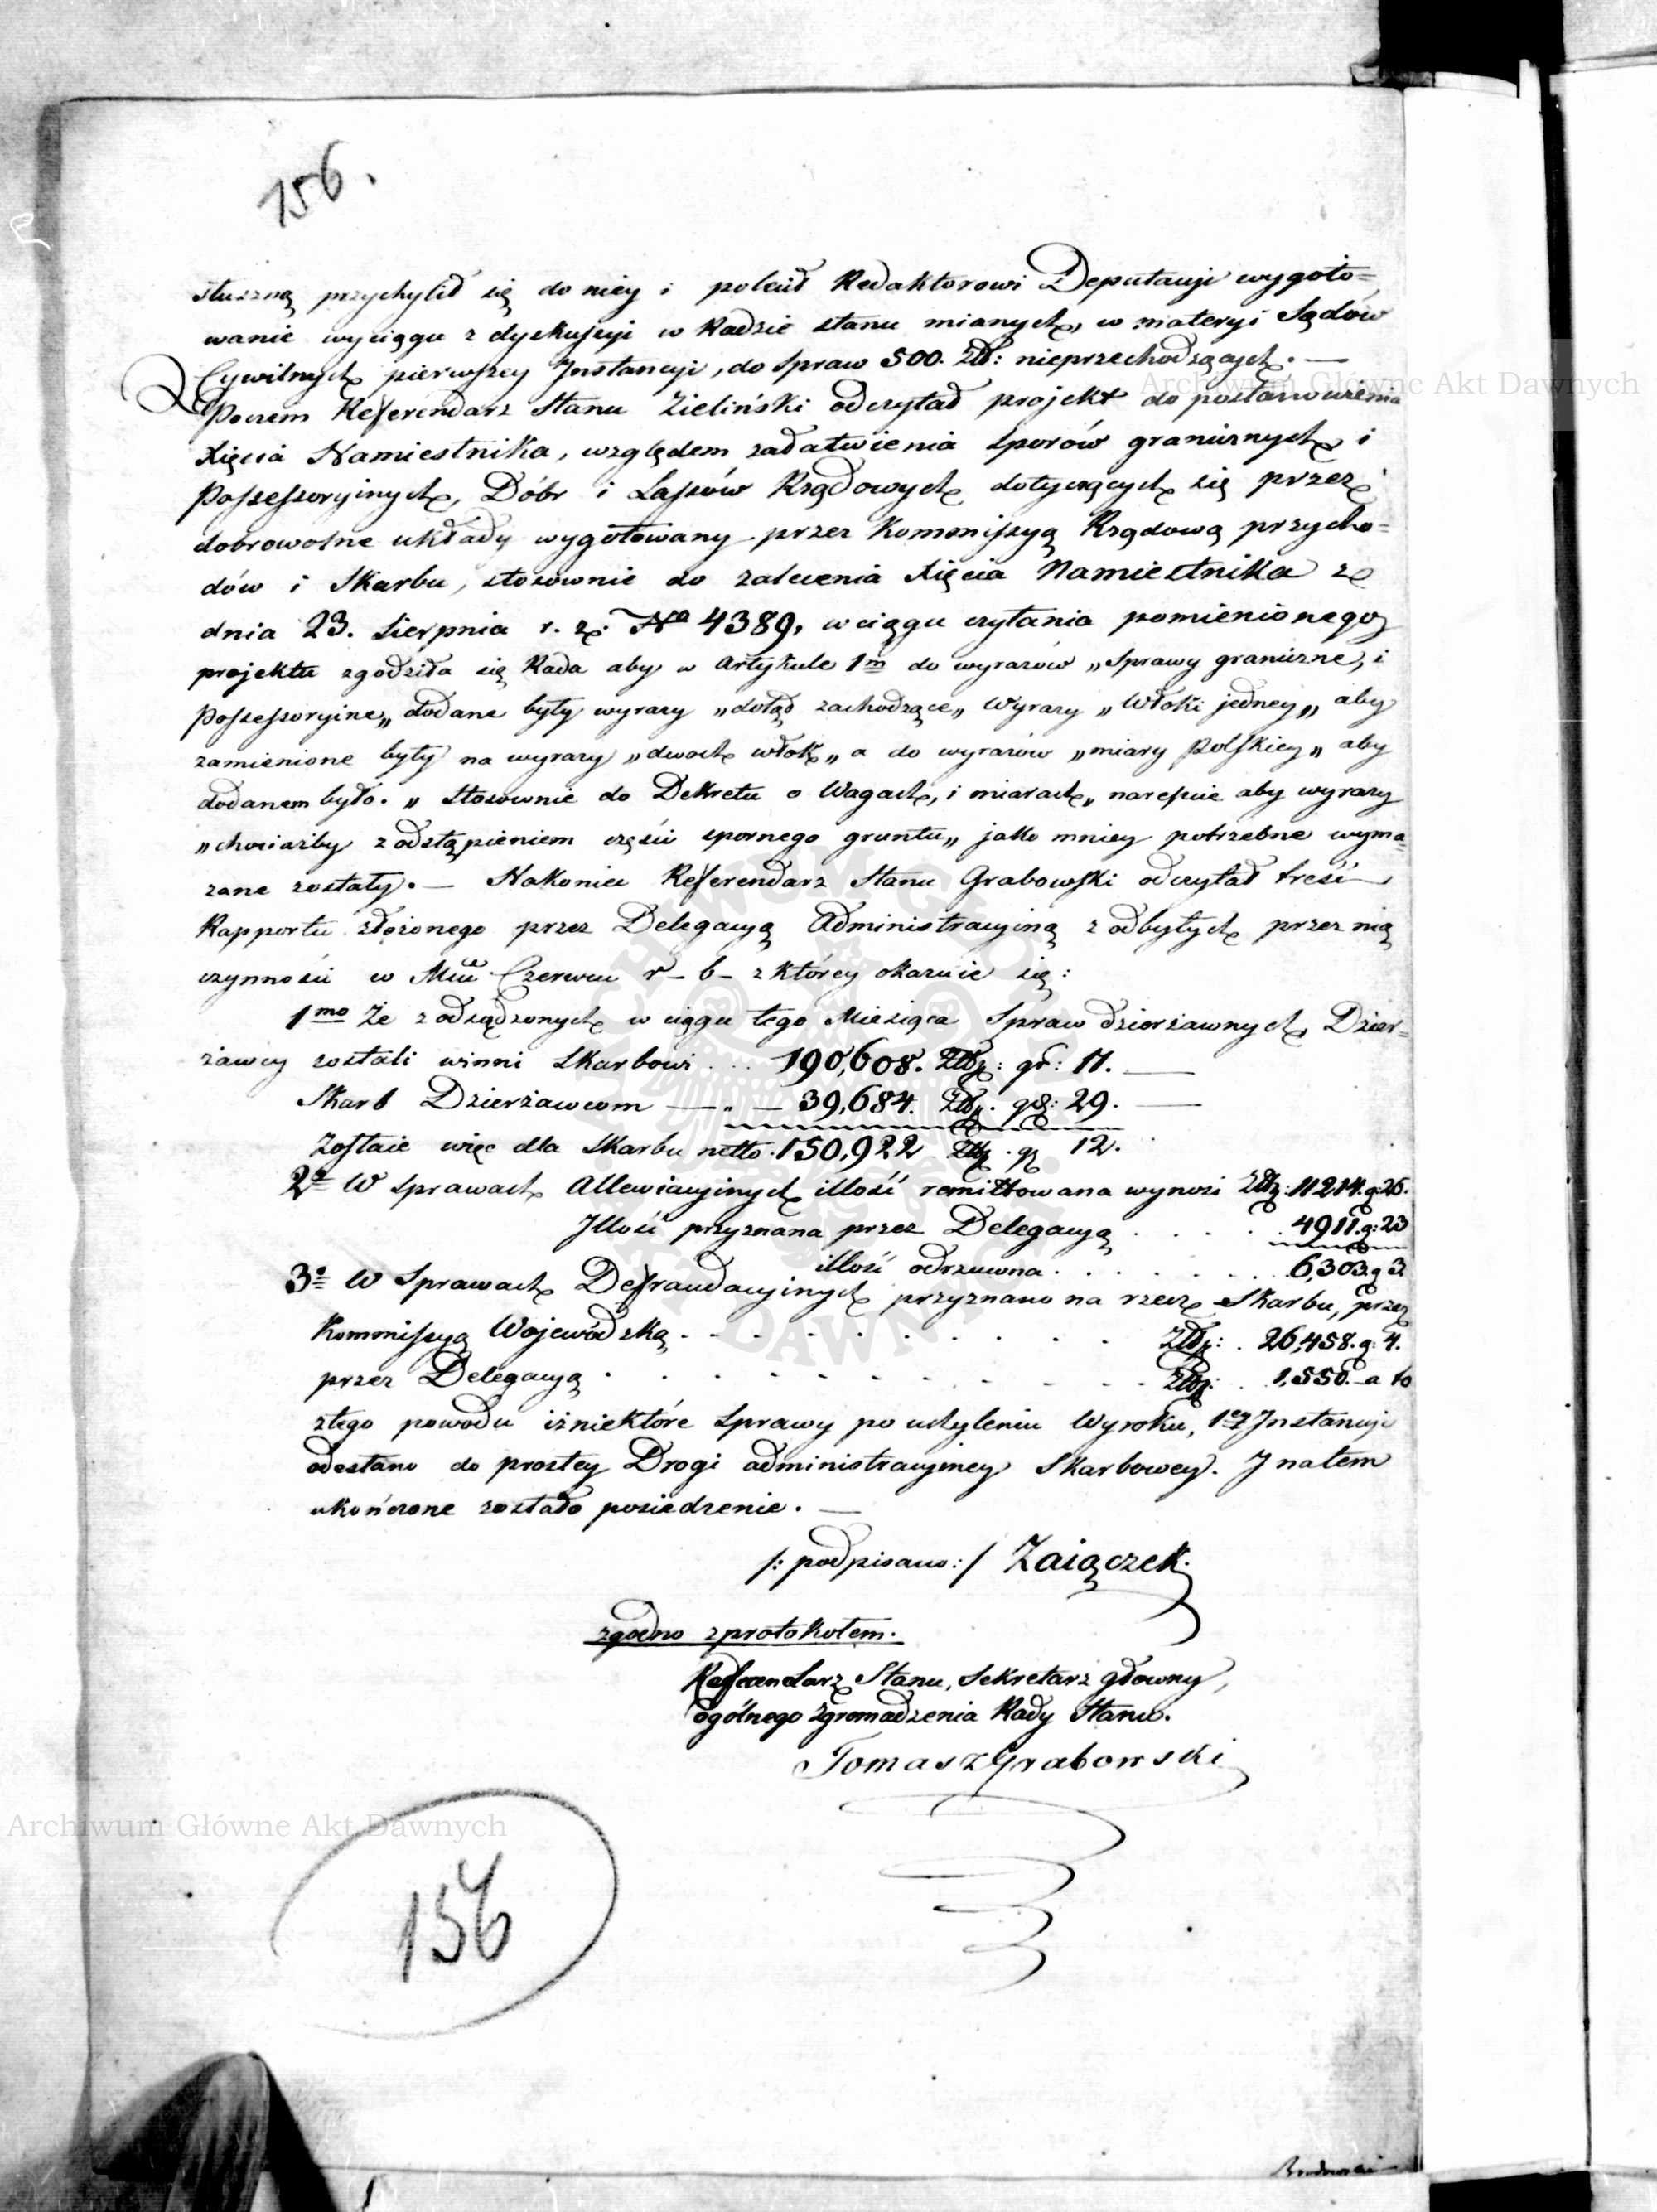 156.
słuszną przychylił się do niey i polecił Redaktorowi Deputacyi wygoto=
wanie wyciągu z dyskusyi w Radzie stanu mianych, w materyi Sądów
Cywilnych pierwszey Instancyi, do spraw 500. Zł: nieprzechodzących. —
Poczem Referendarz Stanu Zieliński odczytał projekt do postanowienia
Xięcia Namiestnika, względem załatwienia sporów granicznych i
Possessoryinych, Dóbr i Lassów Rządowych dotyczących się przez
dobrowolne układy wygotowany przez Kommissyą Rządową przycho=
dów i Skarbu, stosownie do zalecenia Xięcia Namiestnika z
dnia 23. Sierpnia r. z. No 4389, w ciągu czytania pomienionego
projektu zgodziła się Rada aby w Artykule 1m do wyrazów „Sprawy graniczne, i
Possessoryine„ dodane były wyrazy „dotąd zachodzące„ Wyrazy „Włoki jedney„ aby
zamienione były na wyrazy „dwoch włok„ a do wyrazów „miary Polskiey„ aby
dodanem było. „Stosownie do Dekretu o Wagach, i miarach„ nareszcie aby wyrazy
„chociażby z odstąpieniem części spornego gruntu„ jako mniey potrzebne wyma=
zane zostały. — Nakoniec Referendarz Stanu Grabowski odczytał treść
Rapportu złożonego przez Delegacyą Administracyiną z odbytych przez nią
czynności w Mcu Czerwcu r - b - z którey okazuie się:
1mo Że z odsądzonych w ciągu tego Miesiąca Spraw dzierżawnych Dzier=
żawcy zostali winni Skarbowi . . . 190,608. Złp: gr: 11. —
Skarb Dzierżawcom — „ — 39,684. Złp. gr: 29. —
Zostaie więc dla Skarbu netto . 150,922 Złp. gr 12.
2o W sprawach Allewiacyinych illość remittowana wynosi Złp: 11214. g: 26.
Illość przyznana przez Delegacyą . . . . 4911. g: 23
illość odrzucona . . . . . . . 6,303. g 3
3o W Sprawach Defraudacyinych przyznano na rzecz Skarbu, przez
Kommissyą Wojewódzką . - - . - . . . . . Złp: . 26,458. g: 4.
przez Delegacyą . . . - - - - - - - - Złp: . 1,550. - a to
z tego powodu iż niektóre Sprawy po uchyleniu Wyroku, 1ey Instancyi
odesłano do prostey Drogi administracyiney Skarbowey. I na tem
ukończone zostało posiedzenie. —
/: podpisano: / Zaiączek.
zgodno z protokołem.
Referendarz Stanu, Sekretarz główny,
ogólnego Zgromadzenia Rady Stanu.
Tomasz Grabowski
156
Archiwum Główne Akt Dawnych
Archiwum Główne Akt Dawnych